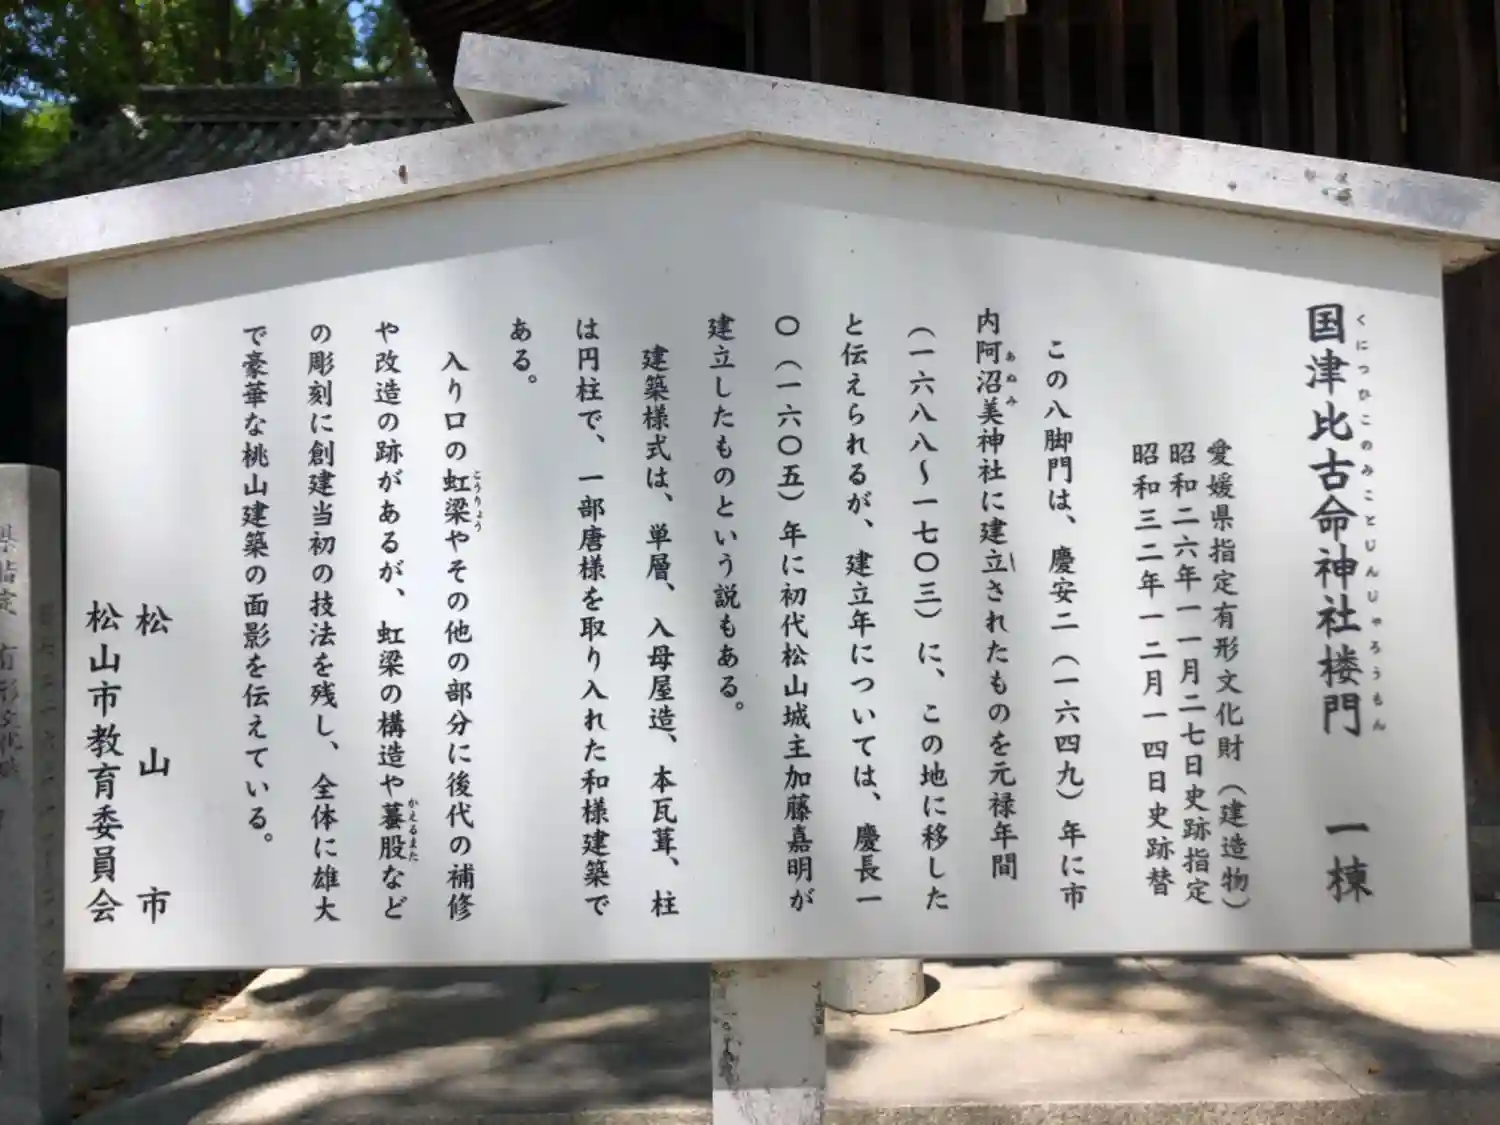 国津比古命神社楼門　一棟
くにつひこのみことじんじゃろうもん
愛媛県指定有形文化財（建造物）
昭和二六年一一月二七日史跡指定
昭和三二年一二月一四日史跡替
この八脚門は、慶安二（一六四九）年に市
内阿沼美神社に建立されたものを元禄年間
あぬみ
し
（一六八八～一七〇三）に、この地に移した
と伝えられるが、建立年については、慶長一
〇（一六〇五）年に初代松山城主加藤嘉明が
建立したものという説もある。
建築様式は、単層、入母屋造、本瓦葺、柱
は円柱で、一部唐様を取り入れた和様建築で
ある。
入り口の虹梁やその他の部分に後代の補修
こうりょう
や改造の跡があるが、虹梁の構造や蟇股など
かえるまた
の彫刻に創建当初の技法を残し、全体に雄大
で豪華な桃山建築の面影を伝えている。
松山市
松山市教育委員会